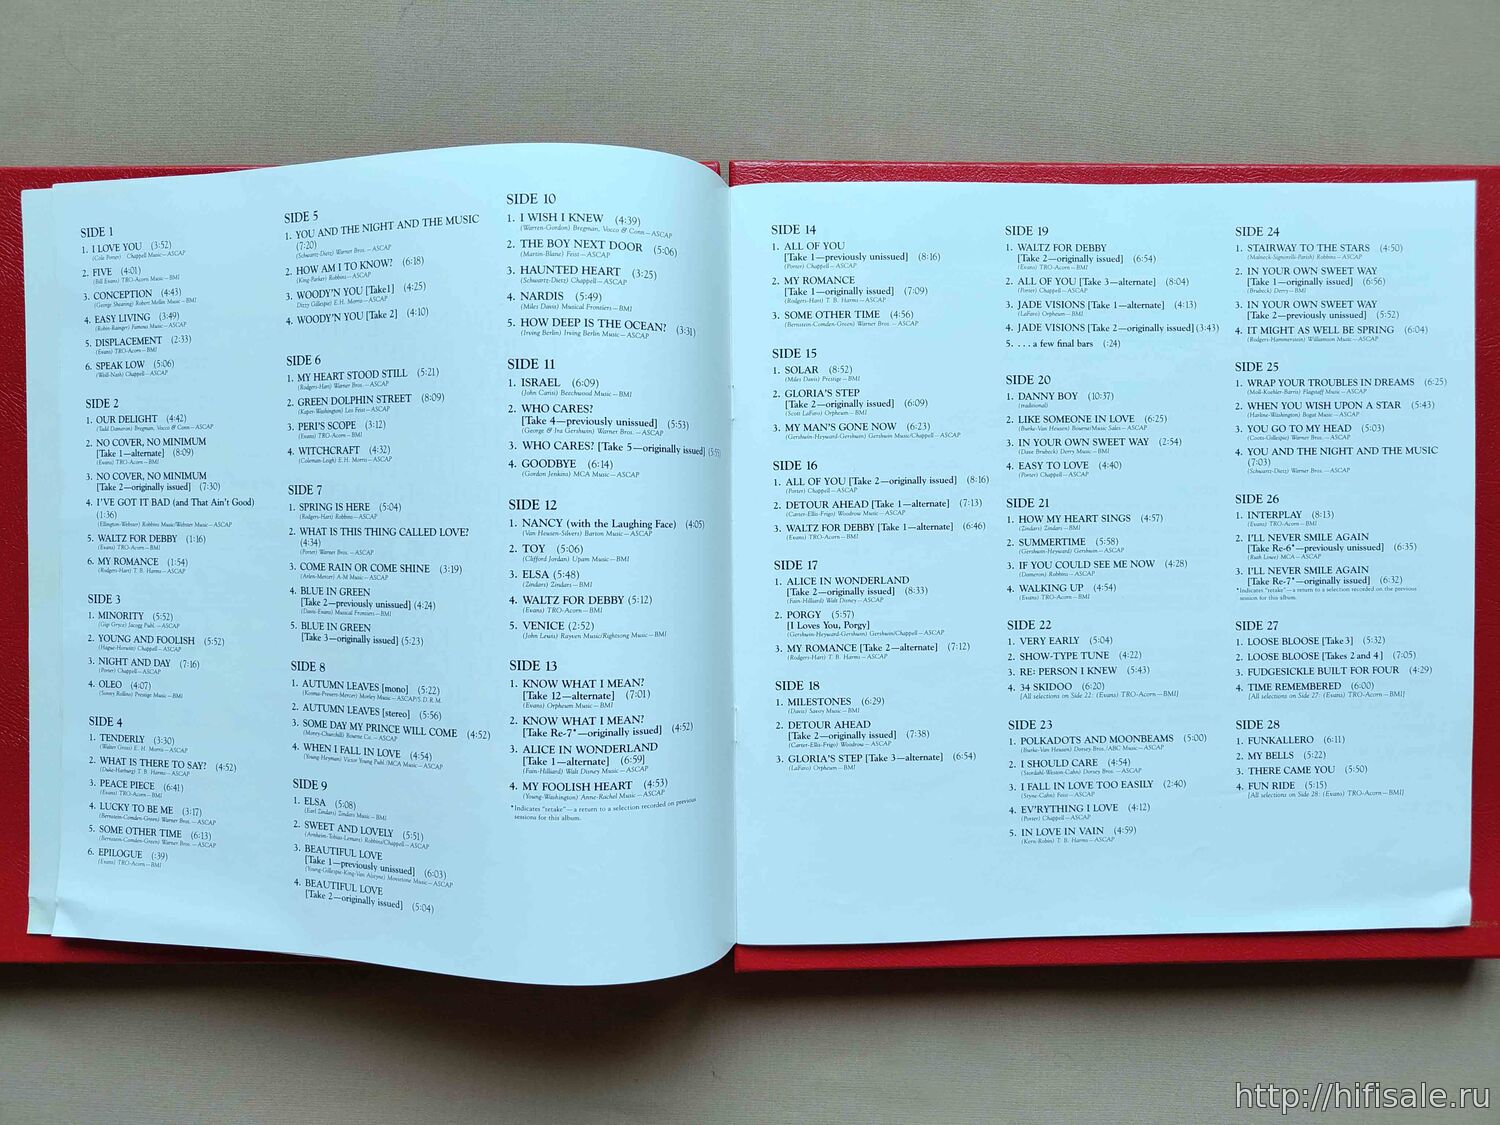 SIDE 1
1. I LOVE YOU (3:52)
(Cole Porter) Chappell Music—ASCAP
2. FIVE (4:01)
(Bill Evans) TRO-Acorn Music—BMI
3. CONCEPTION (4:43)
(George Shearing) Robert Mellin Music—BMI
4. EASY LIVING (3:49)
(Robin-Rainger) Famous Music—ASCAP
5. DISPLACEMENT (2:33)
(Evans) TRO-Acorn—BMI
6. SPEAK LOW (5:06)
(Weill-Nash) Chappell—ASCAP
SIDE 2
1. OUR DELIGHT (4:42)
(Tadd Dameron) Bregman, Vocco & Conn—ASCAP
2. NO COVER, NO MINIMUM
[Take 1—alternate] (8:09)
(Evans) TRO-Acorn—BMI
3. NO COVER, NO MINIMUM
[Take 2—originally issued] (7:30)
(Evans) TRO-Acorn—BMI
4. I'VE GOT IT BAD (and That Ain't Good)
(1:36)
(Ellington-Webster) Robbins Music/Webster Music—ASCAP
5. WALTZ FOR DEBBY (1:16)
(Evans) TRO-Acorn—BMI
6. MY ROMANCE (1:54)
(Rodgers-Hart) T. B. Harms—ASCAP
SIDE 3
1. MINORITY (5:52)
(Gigi Gryce) Jacogg Publ.—ASCAP
2. YOUNG AND FOOLISH (5:52)
(Hague-Horwitt) Chappell—ASCAP
3. NIGHT AND DAY (7:16)
(Porter) Chappell—ASCAP
4. OLEO (4:07)
(Sonny Rollins) Prestige Music—BMI
SIDE 4
1. TENDERLY (3:30)
(Walter Gross) E. H. Morris—ASCAP
2. WHAT IS THERE TO SAY? (4:52)
(Duke-Harburg) T. B. Harms—ASCAP
3. PEACE PIECE (6:41)
(Evans) TRO-Acorn—BMI
4. LUCKY TO BE ME (3:17)
(Bernstein-Comden-Green) Warner Bros.—ASCAP
5. SOME OTHER TIME (6:13)
(Bernstein-Comden-Green) Warner Bros.—ASCAP
6. EPILOGUE (:39)
(Evans) TRO-Acorn—BMI
SIDE 5
1. YOU AND THE NIGHT AND THE MUSIC
(7:20)
(Schwartz-Dietz) Warner Bros.—ASCAP
2. HOW AM I TO KNOW? (6:18)
(King-Parker) Robbins—ASCAP
3. WOODY'N YOU [Take1] (4:25)
(Dizzy Gillespie) E. H. Morris—ASCAP
4. WOODY'N YOU [Take 2] (4:10)
SIDE 6
1. MY HEART STOOD STILL (5:21)
(Rodgers-Hart) Warner Bros.—ASCAP
2. GREEN DOLPHIN STREET (8:09)
(Kaper-Washington) Leo Feist—ASCAP
3. PERI'S SCOPE (3:12)
(Evans) TRO-Acorn—BMI
4. WITCHCRAFT (4:32)
(Coleman-Leigh) E. H. Morris—ASCAP
SIDE 7
1. SPRING IS HERE (5:04)
(Rodgers-Hart) Robbins—ASCAP
2. WHAT IS THIS THING CALLED LOVE?
(4:34)
(Porter) Warner Bros.—ASCAP
3. COME RAIN OR COME SHINE (3:19)
(Arlen-Mercer) A-M Music—ASCAP
4. BLUE IN GREEN
[Take 2—previously unissued] (4:24)
(Davis-Evans) Musical Frontiers—BMI
5. BLUE IN GREEN
[Take 3—originally issued] (5:23)
SIDE 8
1. AUTUMN LEAVES [mono] (5:22)
(Kosma-Prevert-Mercer) Morley Music—ASCAP/S.D.R.M.
2. AUTUMN LEAVES [stereo] (5:56)
3. SOME DAY MY PRINCE WILL COME (4:52)
(Morey-Churchill) Bourne Co.—ASCAP
4. WHEN I FALL IN LOVE (4:54)
(Young-Heyman) Victor Young Publ./MCA Music—ASCAP
SIDE 9
1. ELSA (5:08)
(Earl Zindars) Zindars Music—BMI
2. SWEET AND LOVELY (5:51)
(Arnheim-Tobias-Lemare) Robbins/Chappell—ASCAP
3. BEAUTIFUL LOVE
[Take 1—previously unissued] (6:03)
(Young-Gillespie-King-Van Alstyne) Movietone Music—ASCAP
4. BEAUTIFUL LOVE
[Take 2—originally issued] (5:04)
SIDE 10
1. I WISH I KNEW (4:39)
(Warren-Gordon) Bregman, Vocco & Conn—ASCAP
2. THE BOY NEXT DOOR (5:06)
(Martin-Blane) Feist—ASCAP
3. HAUNTED HEART (3:25)
(Schwartz-Dietz) Chappell—ASCAP
4. NARDIS (5:49)
(Miles Davis) Musical Frontiers—BMI
5. HOW DEEP IS THE OCEAN? (3:31)
(Irving Berlin) Irving Berlin Music—ASCAP
SIDE 11
1. ISRAEL (6:09)
(John Carisi) Beechwood Music—BMI
2. WHO CARES?
[Take 4—previously unissued] (5:53)
(George & Ira Gershwin) Warner Bros.—ASCAP
3. WHO CARES? [Take 5—originally issued] (5:55)
4. GOODBYE (6:14)
(Gordon Jenkins) MCA Music—ASCAP
SIDE 12
1. NANCY (with the Laughing Face) (4:05)
(Van Heusen-Silvers) Barton Music—ASCAP
2. TOY (5:06)
(Clifford Jordan) Upam Music—BMI
3. ELSA (5:48)
(Zindars) Zindars—BMI
4. WALTZ FOR DEBBY (5:12)
(Evans) TRO-Acorn—BMI
5. VENICE (2:52)
(John Lewis) Rayven Music/Rightsong Music—BMI
SIDE 13
1. KNOW WHAT I MEAN?
[Take 12—alternate] (7:01)
(Evans) Orpheum Music—BMI
2. KNOW WHAT I MEAN?
[Take Re-7*—originally issued] (4:52)
3. ALICE IN WONDERLAND
[Take 1—alternate] (6:59)
(Fain-Hilliard) Walt Disney Music—ASCAP
4. MY FOOLISH HEART (4:53)
(Young-Washington) Anne-Rachel Music—ASCAP
*Indicates "retake"—a return to a selection recorded on previous
sessions for this album.
SIDE 14
1. ALL OF YOU
[Take 1—previously unissued] (8:16)
(Porter) Chappell—ASCAP
2. MY ROMANCE
[Take 1—originally issued] (7:09)
(Rodgers-Hart) T. B. Harms—ASCAP
3. SOME OTHER TIME (4:56)
(Bernstein-Comden-Green) Warner Bros.—ASCAP
SIDE 15
1. SOLAR (8:52)
(Miles Davis) Prestige—BMI
2. GLORIA'S STEP
[Take 2—originally issued] (6:09)
(Scott LaFaro) Orpheum—BMI
3. MY MAN'S GONE NOW (6:23)
(Gershwin-Heyward-Gershwin) Gershwin Music/Chappell—ASCAP
SIDE 16
1. ALL OF YOU [Take 2—originally issued] (8:16)
(Porter) Chappell—ASCAP
2. DETOUR AHEAD [Take 1—alternate] (7:13)
(Carter-Ellis-Frigo) Woodrow Music—ASCAP
3. WALTZ FOR DEBBY [Take 1—alternate] (6:46)
(Evans) TRO-Acorn—BMI
SIDE 17
1. ALICE IN WONDERLAND
[Take 2—originally issued] (8:33)
(Fain-Hilliard) Walt Disney—ASCAP
2. PORGY (5:57)
[I Loves You, Porgy]
(Gershwin-Heyward-Gershwin) Gershwin/Chappell—ASCAP
3. MY ROMANCE [Take 2—alternate] (7:12)
(Rodgers-Hart) T. B. Harms—ASCAP
SIDE 18
1. MILESTONES (6:29)
(Davis) Savoy Music—BMI
2. DETOUR AHEAD
[Take 2—originally issued] (7:38)
(Carter-Ellis-Frigo) Woodrow—ASCAP
3. GLORIA'S STEP [Take 3—alternate] (6:54)
(LaFaro) Orpheum—BMI
SIDE 19
1. WALTZ FOR DEBBY
[Take 2—originally issued] (6:54)
(Evans) TRO-Acorn—BMI
2. ALL OF YOU [Take 3—alternate] (8:04)
(Porter) Chappell—ASCAP
3. JADE VISIONS [Take 1—alternate] (4:13)
(LaFaro) Orpheum—BMI
4. JADE VISIONS [Take 2—originally issued] (3:43)
5. . . . a few final bars (:24)
SIDE 20
1. DANNY BOY (10:37)
(traditional)
2. LIKE SOMEONE IN LOVE (6:25)
(Burke-Van Heusen) Bourne/Music Sales—ASCAP
3. IN YOUR OWN SWEET WAY (2:54)
(Dave Brubeck) Derry Music—BMI
4. EASY TO LOVE (4:40)
(Porter) Chappell—ASCAP
SIDE 21
1. HOW MY HEART SINGS (4:57)
(Zindars) Zindars—BMI
2. SUMMERTIME (5:58)
(Gershwin-Heyward) Gershwin—ASCAP
3. IF YOU COULD SEE ME NOW (4:28)
(Dameron) Robbins—ASCAP
4. WALKING UP (4:54)
(Evans) TRO-Acorn—BMI
SIDE 22
1. VERY EARLY (5:04)
2. SHOW-TYPE TUNE (4:22)
3. RE: PERSON I KNEW (5:43)
4. 34 SKIDOO (6:20)
[All selections on Side 22: (Evans) TRO-Acorn—BMI]
SIDE 23
1. POLKADOTS AND MOONBEAMS (5:00)
(Burke-Van Heusen) Dorsey Bros./ABC Music—ASCAP
2. I SHOULD CARE (4:54)
(Stordahl-Weston-Cahn) Dorsey Bros.—ASCAP
3. I FALL IN LOVE TOO EASILY (2:40)
(Styne-Cahn) Feist—ASCAP
4. EV'RYTHING I LOVE (4:12)
(Porter) Chappell—ASCAP
5. IN LOVE IN VAIN (4:59)
(Kern-Robin) T. B. Harms—ASCAP
SIDE 24
1. STAIRWAY TO THE STARS (4:50)
(Malneck-Signorelli-Parish) Robbins—ASCAP
2. IN YOUR OWN SWEET WAY
[Take 1—originally issued] (6:56)
(Brubeck) Derry—BMI
3. IN YOUR OWN SWEET WAY
[Take 2—previously issued] (5:52)
4. IT MIGHT AS WELL BE SPRING (6:04)
(Rodgers-Hammerstein) Williamson Music—ASCAP
SIDE 25
1. WRAP YOUR TROUBLES IN DREAMS (6:25)
(Moll-Koehler-Barris) Flagstaff Music—ASCAP
2. WHEN YOU WISH UPON A STAR (5:43)
(Harline-Washington) Bogat Music—ASCAP
3. YOU GO TO MY HEAD (5:03)
(Coots-Gillespie) Warner Bros.—ASCAP
4. YOU AND THE NIGHT AND THE MUSIC
(7:03)
(Schwartz-Dietz) Warner Bros.—ASCAP
SIDE 26
1. INTERPLAY (8:13)
(Evans) TRO-Acorn—BMI
2. I'LL NEVER SMILE AGAIN
[Take Re-6*—previously unissued] (6:35)
(Ruth Lowe) MCA—ASCAP
3. I'LL NEVER SMILE AGAIN
[Take Re-7*—originally issued] (6:32)
*Indicates "retake"—a return to a selection recorded on the previous
session for this album.
SIDE 27
1. LOOSE BLOOSE [Take 3] (5:32)
2. LOOSE BLOOSE [Takes 2 and 4] (7:05)
3. FUDGESICKLE BUILT FOR FOUR (4:29)
4. TIME REMEMBERED (6:00)
[All selections on Side 27: (Evans) TRO-Acorn—BMI]
SIDE 28
1. FUNKALLERO (6:11)
2. MY BELLS (5:22)
3. THERE CAME YOU (5:50)
4. FUN RIDE (5:15)
[All selections on Side 28: (Evans) TRO-Acorn—BMI]
http://hifisale.ru